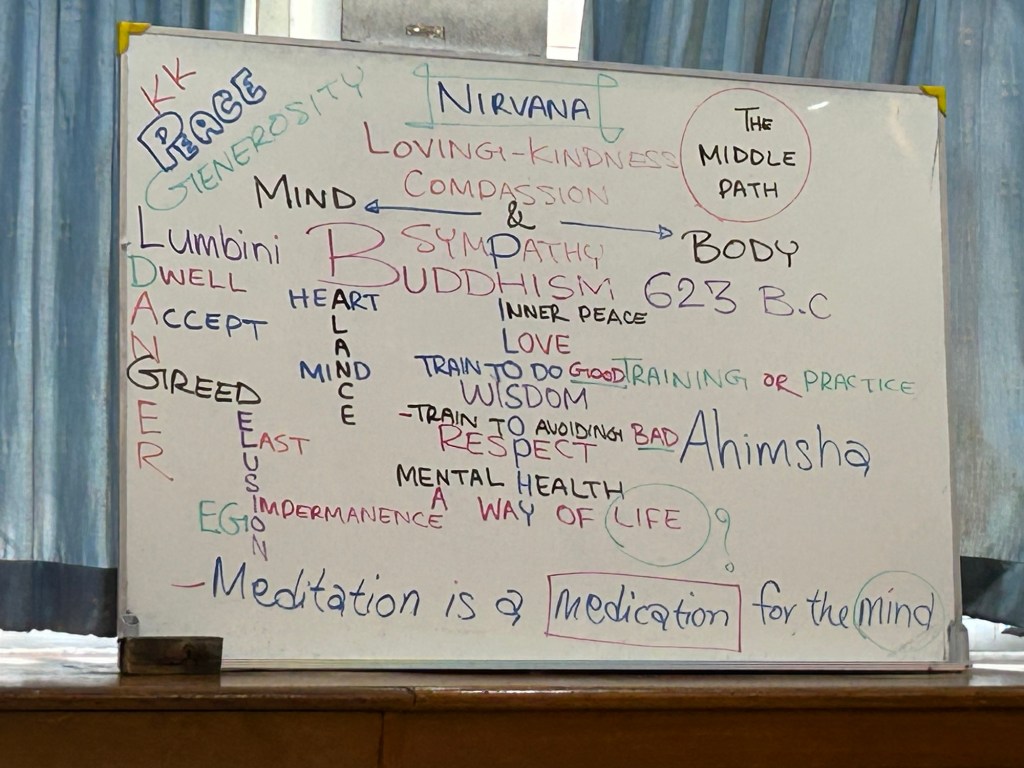 KK
PEACE
GENEROSITY
NIRVANA
THE
MIDDLE
PATH
LOVING-KINDNESS
COMPASSION
MIND
&
BODY
SYMPATHY
Lumbini
BUDDHISM 623 B.C
DWELL
HEART
L
A
INNER PEACE
ACCEPT
LOVE
N
MIND
C
E
TRAIN TO DO GOOD TRAINING OR PRACTICE
GREED
WISDOM
E
R
E
LAST
U
S
-TRAIN TO AVOIDING BAD
Ahimsha
RESPECT
MENTAL HEALTH
A WAY OF LIFE ?
IMPERMANENCE
EGO
N
-Meditation is a medication for the mind